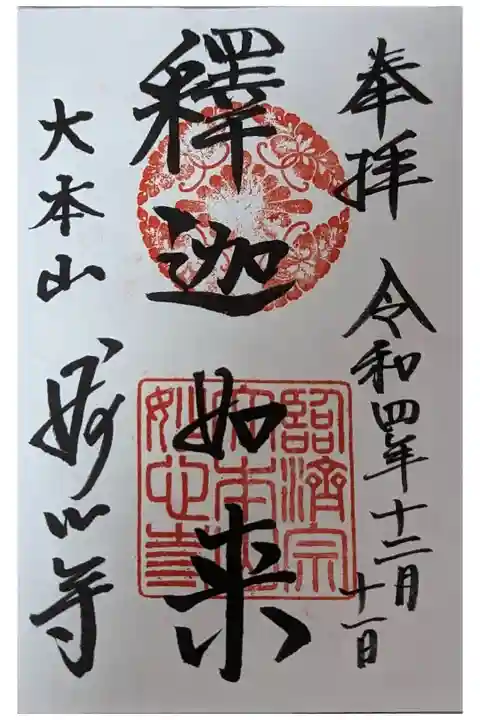 奉拝
令和四年十二月
十一日
釋迦如来
臨済宗
大本山
妙心寺
大本山
妙心寺